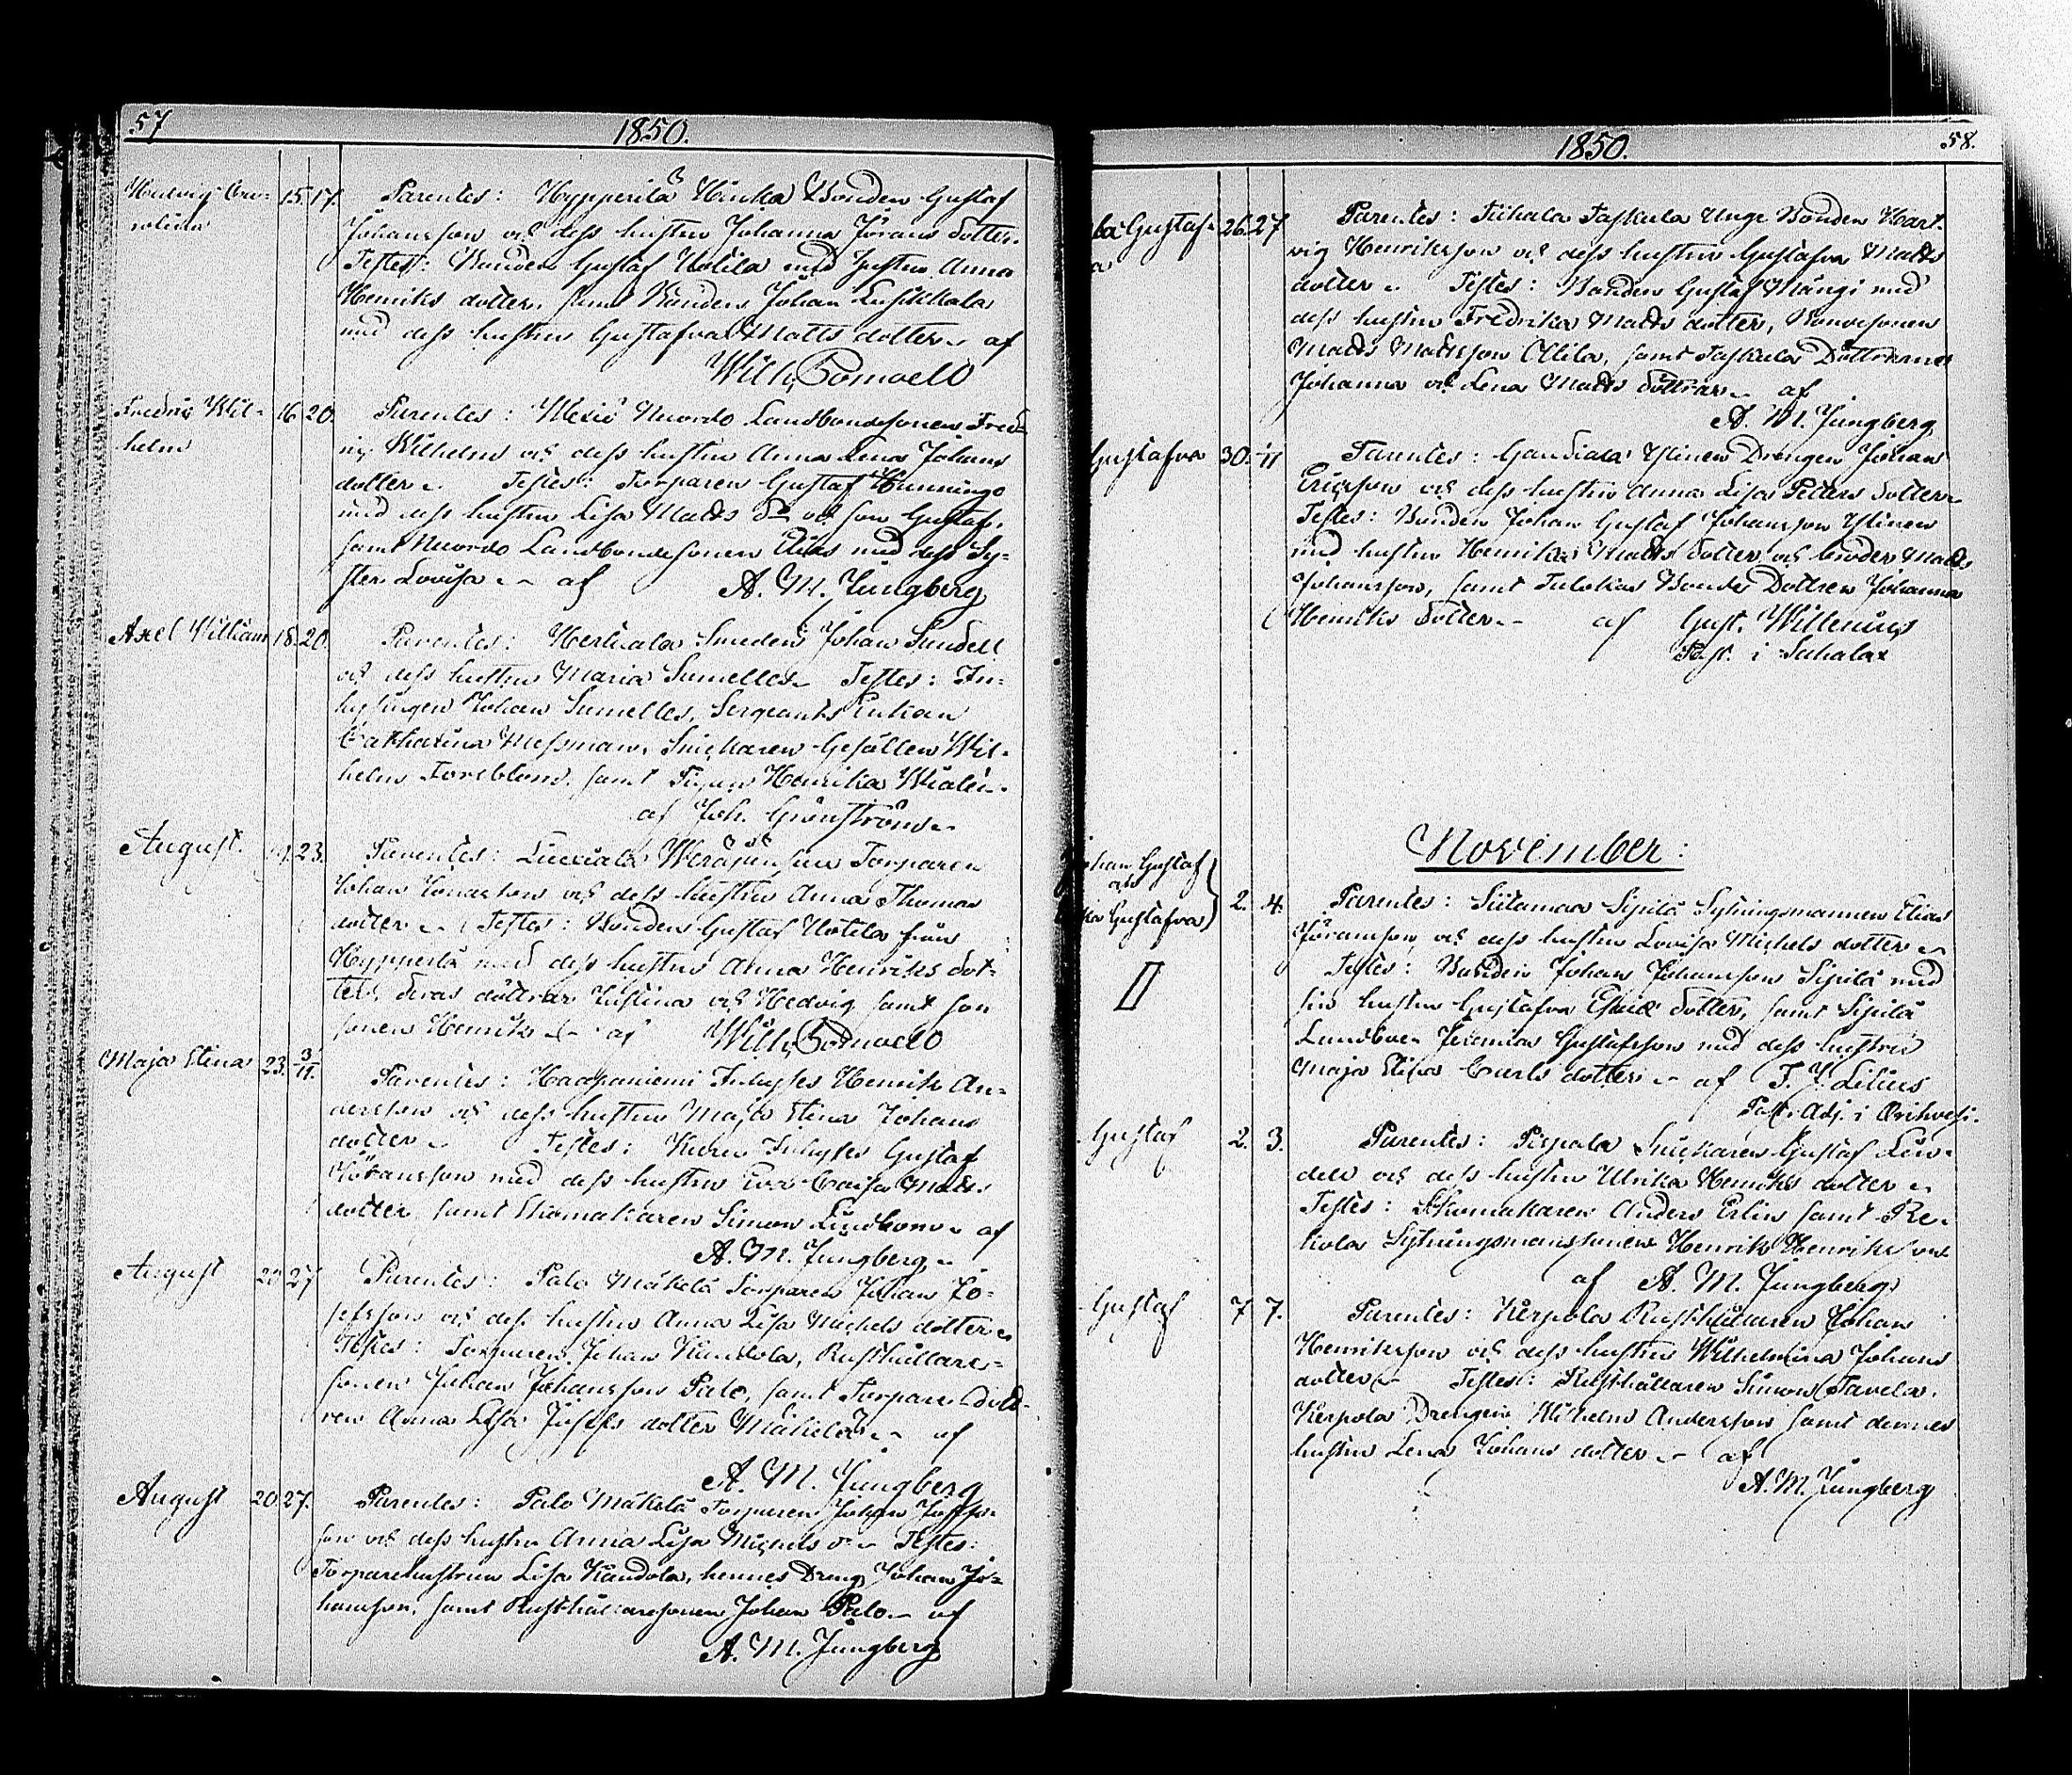 57
1850.
Hedvig Caro-
lina
15. 17.
Parentes: Hypperilä Hinka Bonden Gustaf
Johansson och dess hustru Johanna Jörans dotter.
Testes: Bonden Gustaf Uotila med hustru Anna
Henriks dotter, samt Bonden Johan
med dess hustru Gustafva Matts dotter af
Wilh.
Fredric Wil-
helm
16. 20.
Parentes: Nuordo Landbondesonen Fred-
ric Wilhelm och dess hustru Anna Lena Johans
dotter Testes: Torparen Gustaf
med dess hustru Lisa Matts dr och son Gustaf,
samt Nuordo Landbondesonen med dess Sy-
ster Lovisa af A. M. Jungberg
Axel William
18. 20.
Parentes: Hertuala Smeden Johan Sundell
och dess hustru Maria Sumelles Testes: In-
hysingen Johan Sumelles, Sergeants Enkan
Catharina Messman, Snickaren Gesällen Wil-
helm Forsblom, samt Pigan Henrika
af Joh. Grönström
August.
23.
Parentes: Torparen
Johan och dess hustru Anna Thomas
dotter Testes: Bonden Gustaf Uotila från
Hypperilä med dess hustru Anna Henriks dot-
ter, deras döttrar Justina och Hedvig samt son
sonen Henrik af Wilh.
Maja Stina
23. 3/11.
Parentes: Haapaniemi Inhyses Henrik An-
dersson och dess hustru Maja Stina Johans
dotter Testes: Inhyses Gustaf
Johansson med dess hustru Eva Caisa Matts
dotter, samt Skomakaren Simon Lindbom af
A. M. Jungberg
August
20 27
Parentes: Palo Mäkelä Torparen Johan Jo-
sefsson och dess hustru Anna Lisa Michels dotter
Testes: Torparen Johan Kandola, Rusthållare-
sonen Johan Johansson Palo, samt Torpare Dott-
ren Anna Lisa Josefs dotter Mäkelä af
A. M. Jungberg
August
20. 27.
Parentes: Palo Mäkelä Torparen Johan Josefs-
son och dess hustru Anna Lisa Michels dr Testes:
Torparehustrun Lisa Kandola, hennes Dreng Johan Jo-
hansson, samt Rusthållaresonen Johan Palo af
A. M. Jungberg
1850.
58.
Gustaf-
a
26. 27
Parentes: Tiihala Taskula Unge Bonden Hart-
vig Henriksson och dess hustru Gustafva Matts
dotter Testes: Bonden Gustaf Mangi med
dess hustru Fredrika Matts dotter, Bondesonen
Matts Mattsson Ollila, samt Taskula Döttrarna
Johanna och Lena Matts döttrar af
A. M. Jungberg
Gustafva
30. 11
Parentes: Ylinen Drengen Johan
Ericsson och dess hustru Anna Lisa Petters dotter
Testes: Bonden Johan Gustaf Johansson Ylinen
med hustru Henrika Matts dotter och broder Matts
Johansson, samt Bonde Dottren Johanna
Henriks dotter af Gust. Willenius
Past. i Sahalax
November:
Johan Gustaf
och
Gustafva
2. 4.
II
Parentes: Siitamaa Sipilä Sytningsmannen Elias
Jöransson och dess hustru Lovisa Michels dotter
Testes: Bonden Johan Johansson Sipilä med
sin hustru Gustafva dotter, samt Sipilä
Landbon Jeremias Gustafsson med dess hustru
Maja Lisa Carls dotter af Lilius
Past. Adj. i Orihvesi.
Gustaf
2. 3.
Parentes: Pispala Snickaren Gustaf Lin-
dell och dess hustru Ulrika Henriks dotter
Testes: Skomakaren Anders Erlin samt Re-
kola Sytningsmanssonen Henrik Henriksson
af A. M. Jungberg
Gustaf
7 7.
Parentes: Kerpola Rusthållaren Johan
Henriksson och dess hustru Wilhelmina Johans
dotter Testes: Rusthållaren Simon Tavela,
Kerpola Drengen Wilhelm Andersson samt dennes
hustru Lena Johans dotter af
A. M. Jungberg